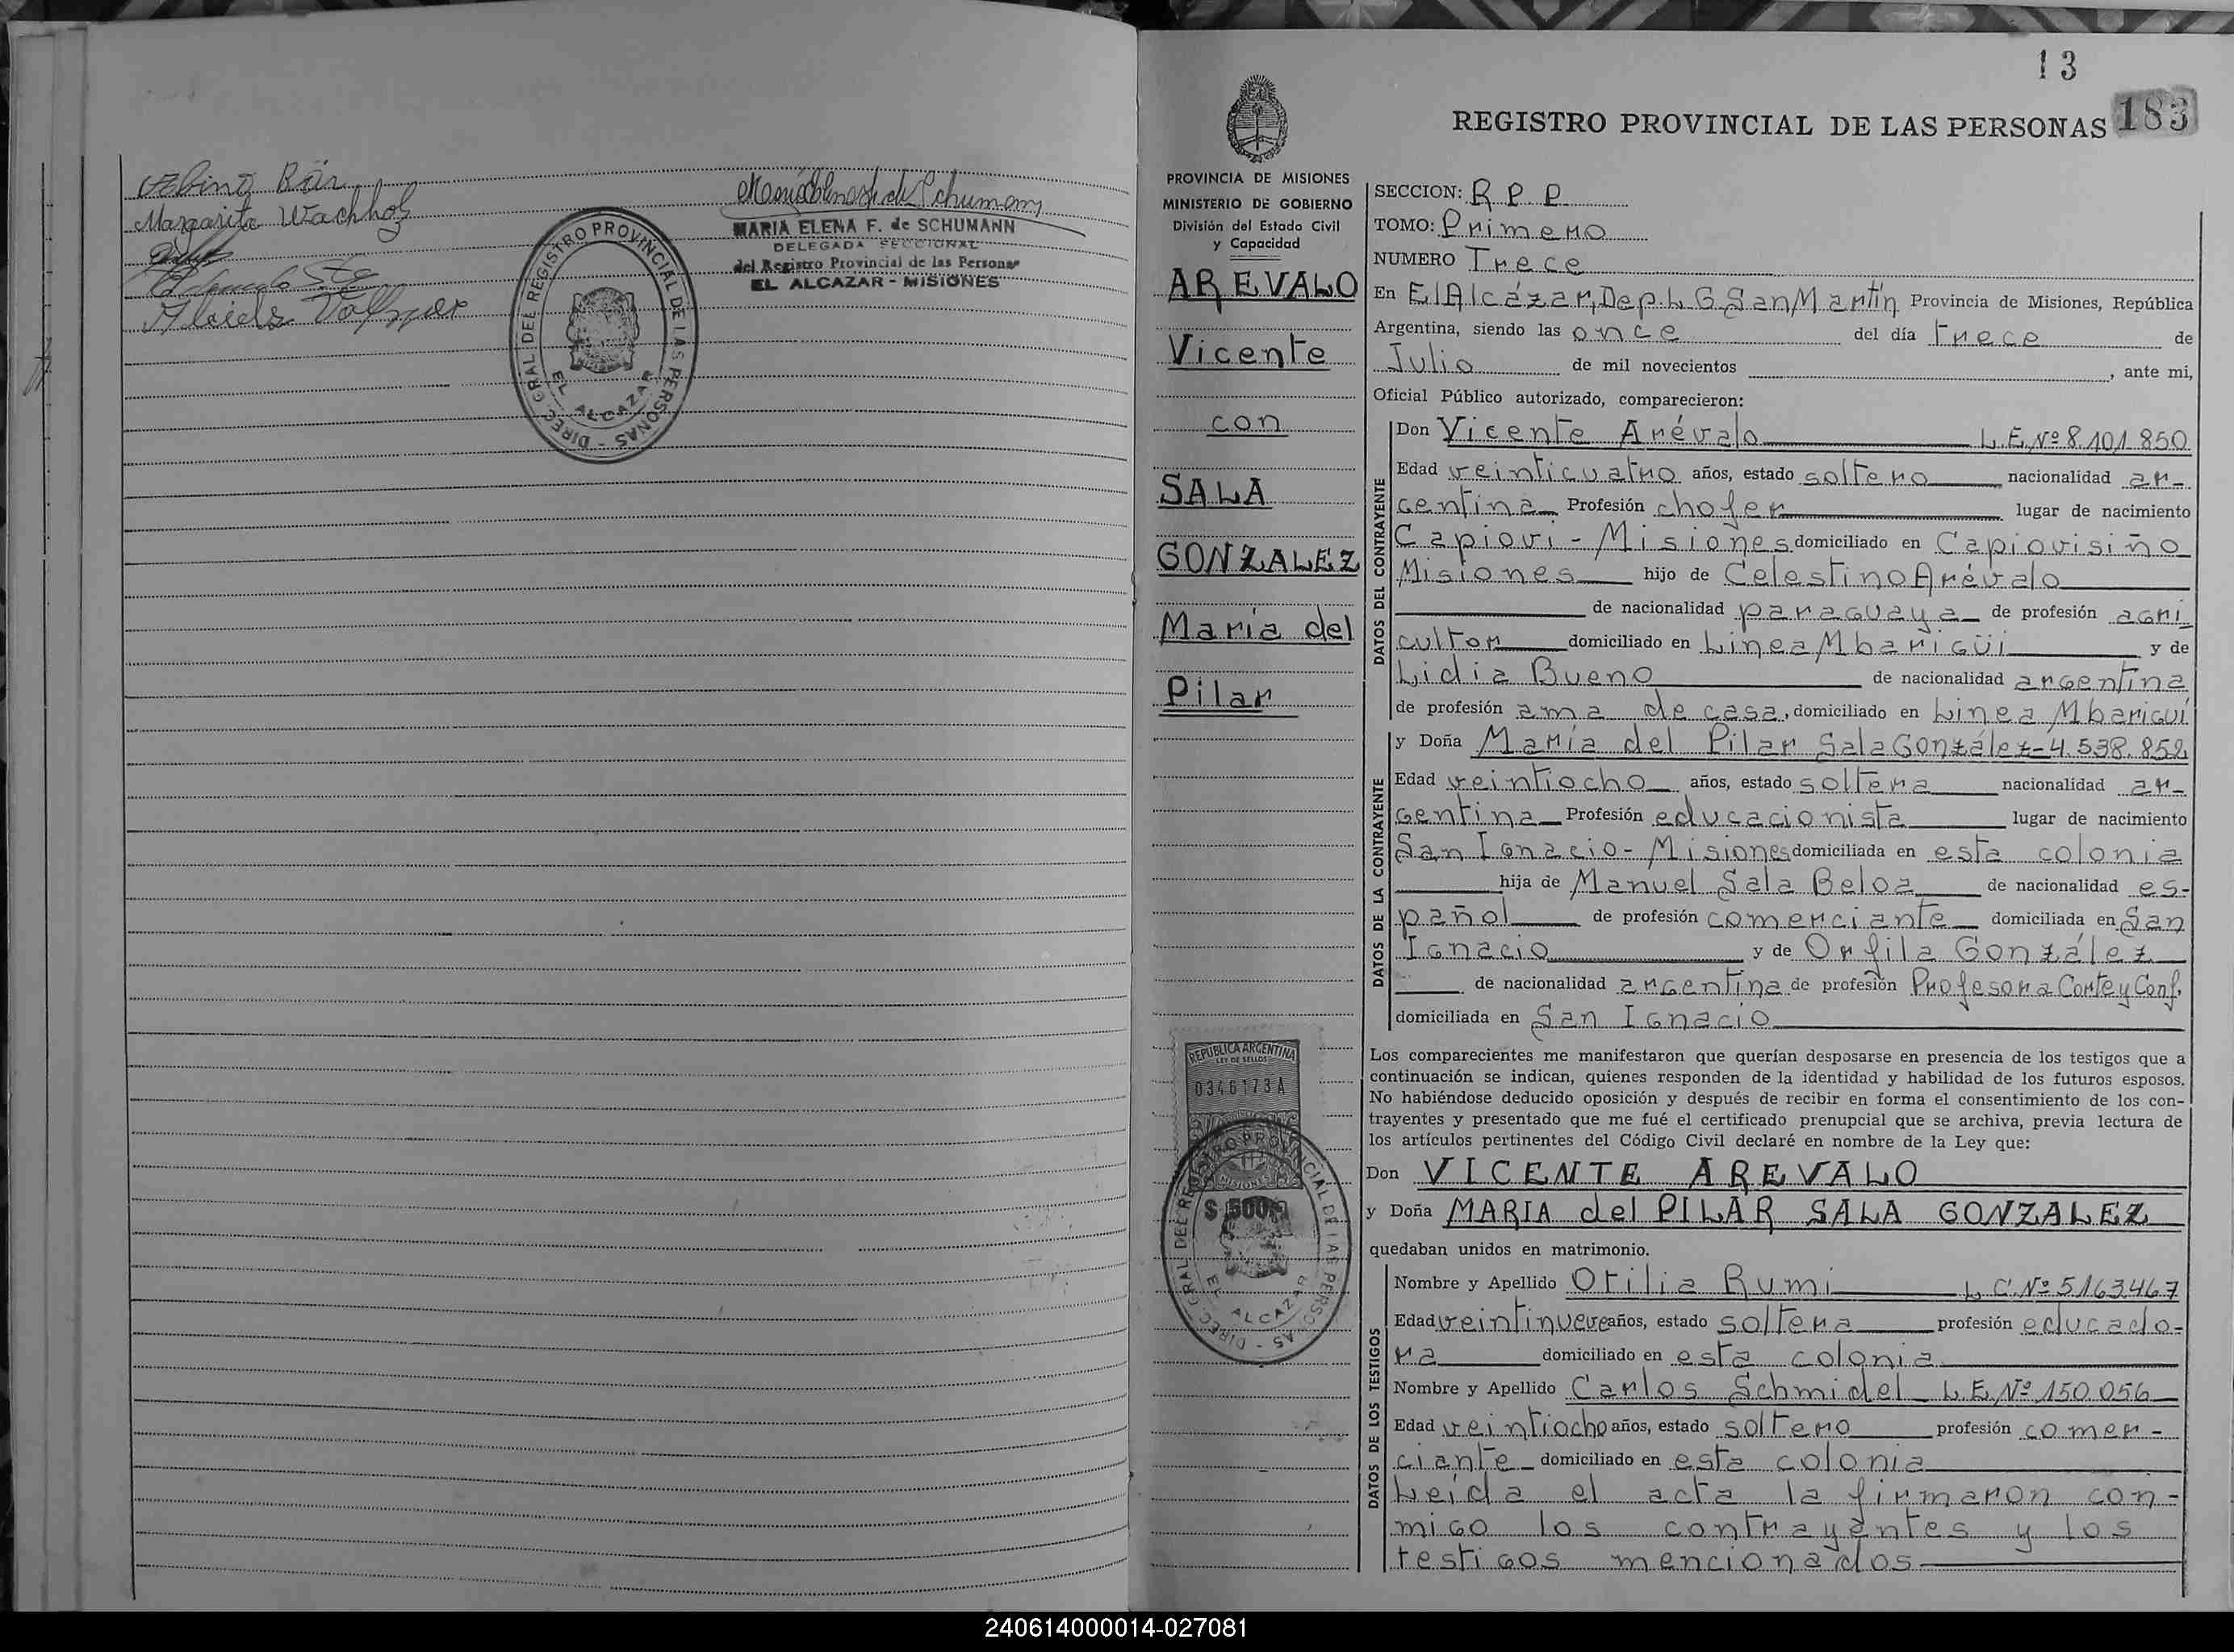 Albino Bär
Margarita Wachholz
MARIA ELENA F. de SCHUMANN
DELEGADA SECCIONAL
del Registro Provincial de las Personas
EL ALCAZAR - MISIONES
DIREC. GRAL DEL REGISTRO PROVINCIAL DE LAS PERSONAS -
EL ALCAZAR
13
183
REGISTRO PROVINCIAL DE LAS PERSONAS
PROVINCIA DE MISIONES
MINISTERIO DE GOBIERNO
División del Estado Civil
y Capacidad
AREVALO
Vicente
con
SALA
GONZALEZ
María del
Pilar
REPUBLICA ARGENTINA
LEY DE SELLOS
0346173A
MISIONES
$ 500
DIREC. GRAL DEL REGISTRO PROVINCIAL DE LAS PERSONAS -
EL ALCAZAR
SECCION: R P P
TOMO: Primero
NUMERO Trece
En El Alcázar, Dep. L G. San Martín Provincia de Misiones, República
Argentina, siendo las once del día trece de
Julio de mil novecientos , ante mi,
Oficial Público autorizado, comparecieron:
DATOS DEL CONTRAYENTE
Don Vicente Arévalo L.E. Nº 8.101.850
Edad veinticuatro años, estado soltero nacionalidad ar-
gentina Profesión chofer lugar de nacimiento
Capioví - Misiones domiciliado en Capiovisiño
Misiones hijo de Celestino Arévalo
de nacionalidad paraguaya de profesión agri
cultor domiciliado en Línea Mbarigüí y de
Lidia Bueno de nacionalidad argentina
de profesión ama de casa, domiciliado en Línea Mbariguí
DATOS DE LA CONTRAYENTE
y Doña María del Pilar Sala González - 4.538.852
Edad veintiocho años, estado soltera nacionalidad ar-
gentina Profesión educacionista lugar de nacimiento
San Ignacio - Misiones domiciliada en esta colonia
hija de Manuel Sala Beloa de nacionalidad es-
pañol de profesión comerciante domiciliada en San
Ignacio y de Orfila González
de nacionalidad argentina de profesión Profesora Corte y Conf.
domiciliada en San Ignacio
Los comparecientes me manifestaron que querían desposarse en presencia de los testigos que a
continuación se indican, quienes responden de la identidad y habilidad de los futuros esposos.
No habiéndose deducido oposición y después de recibir en forma el consentimiento de los con-
trayentes y presentado que me fué el certificado prenupcial que se archiva, previa lectura de
los artículos pertinentes del Código Civil declaré en nombre de la Ley que:
Don VICENTE AREVALO
y Doña MARIA del PILAR SALA GONZALEZ
quedaban unidos en matrimonio.
DATOS DE LOS TESTIGOS
Nombre y Apellido Otilia Rumi L C. Nº 5163467
Edad veintinueve años, estado soltera profesión educado-
ra domiciliado en esta colonia
Nombre y Apellido Carlos Schmidel L.E. Nº 150.056
Edad veintiocho años, estado soltero profesión comer-
ciante domiciliado en esta colonia
Leída el acta la firmaron con-
migo los contrayentes y los
testigos mencionados
240614000014-027081